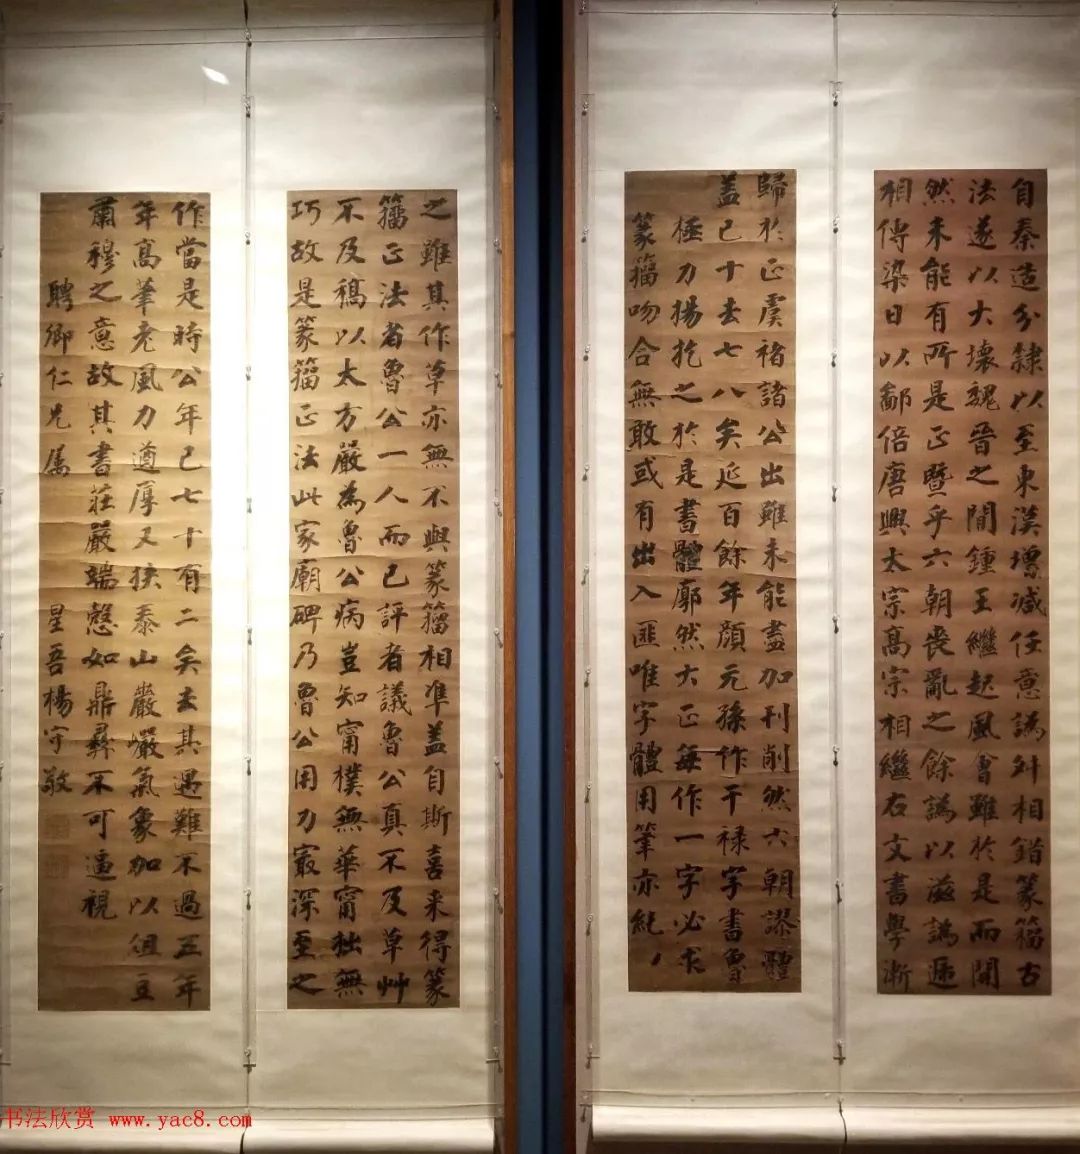 自秦造分隸以至東漢增減任意譌舛相錯篆籀古
法遂以大壞魏晉之間鍾王繼起風會雖於是而開
然未能有所是正暨乎六朝喪亂之餘譌以滋譌遞
相傳染日以鄙倍唐興太宗高宗相繼右文書學漸
歸於正虞褚諸公出雖未能盡加刊削然六朝謬體
盖已十去七八矣延百餘年顏元孫作干禄字書魯
極力揚扢之於是書體廓然大正每作一字必求
篆籀吻合無敢或有出入匪唯字體用筆亦純
之雖其作草亦無不與篆籀相準盖自斯喜来得篆
籀正法者魯公一人而已評者議魯公真不及草艸
不及稿以太方嚴為魯公病豈知甯樸無華甯拙無
巧故是篆籀正法此家廟碑乃魯公用力最深至之
作當是時公年已七十有二矣去其遇難不過五年
年高筆老風力遒厚又挟泰山巖巖氣象加以俎豆
肅穆之意故其書莊嚴端愨如鼎彝不可逼視
聘卿仁兄属 星吾楊守敬
书法欣赏 www.yac8.com